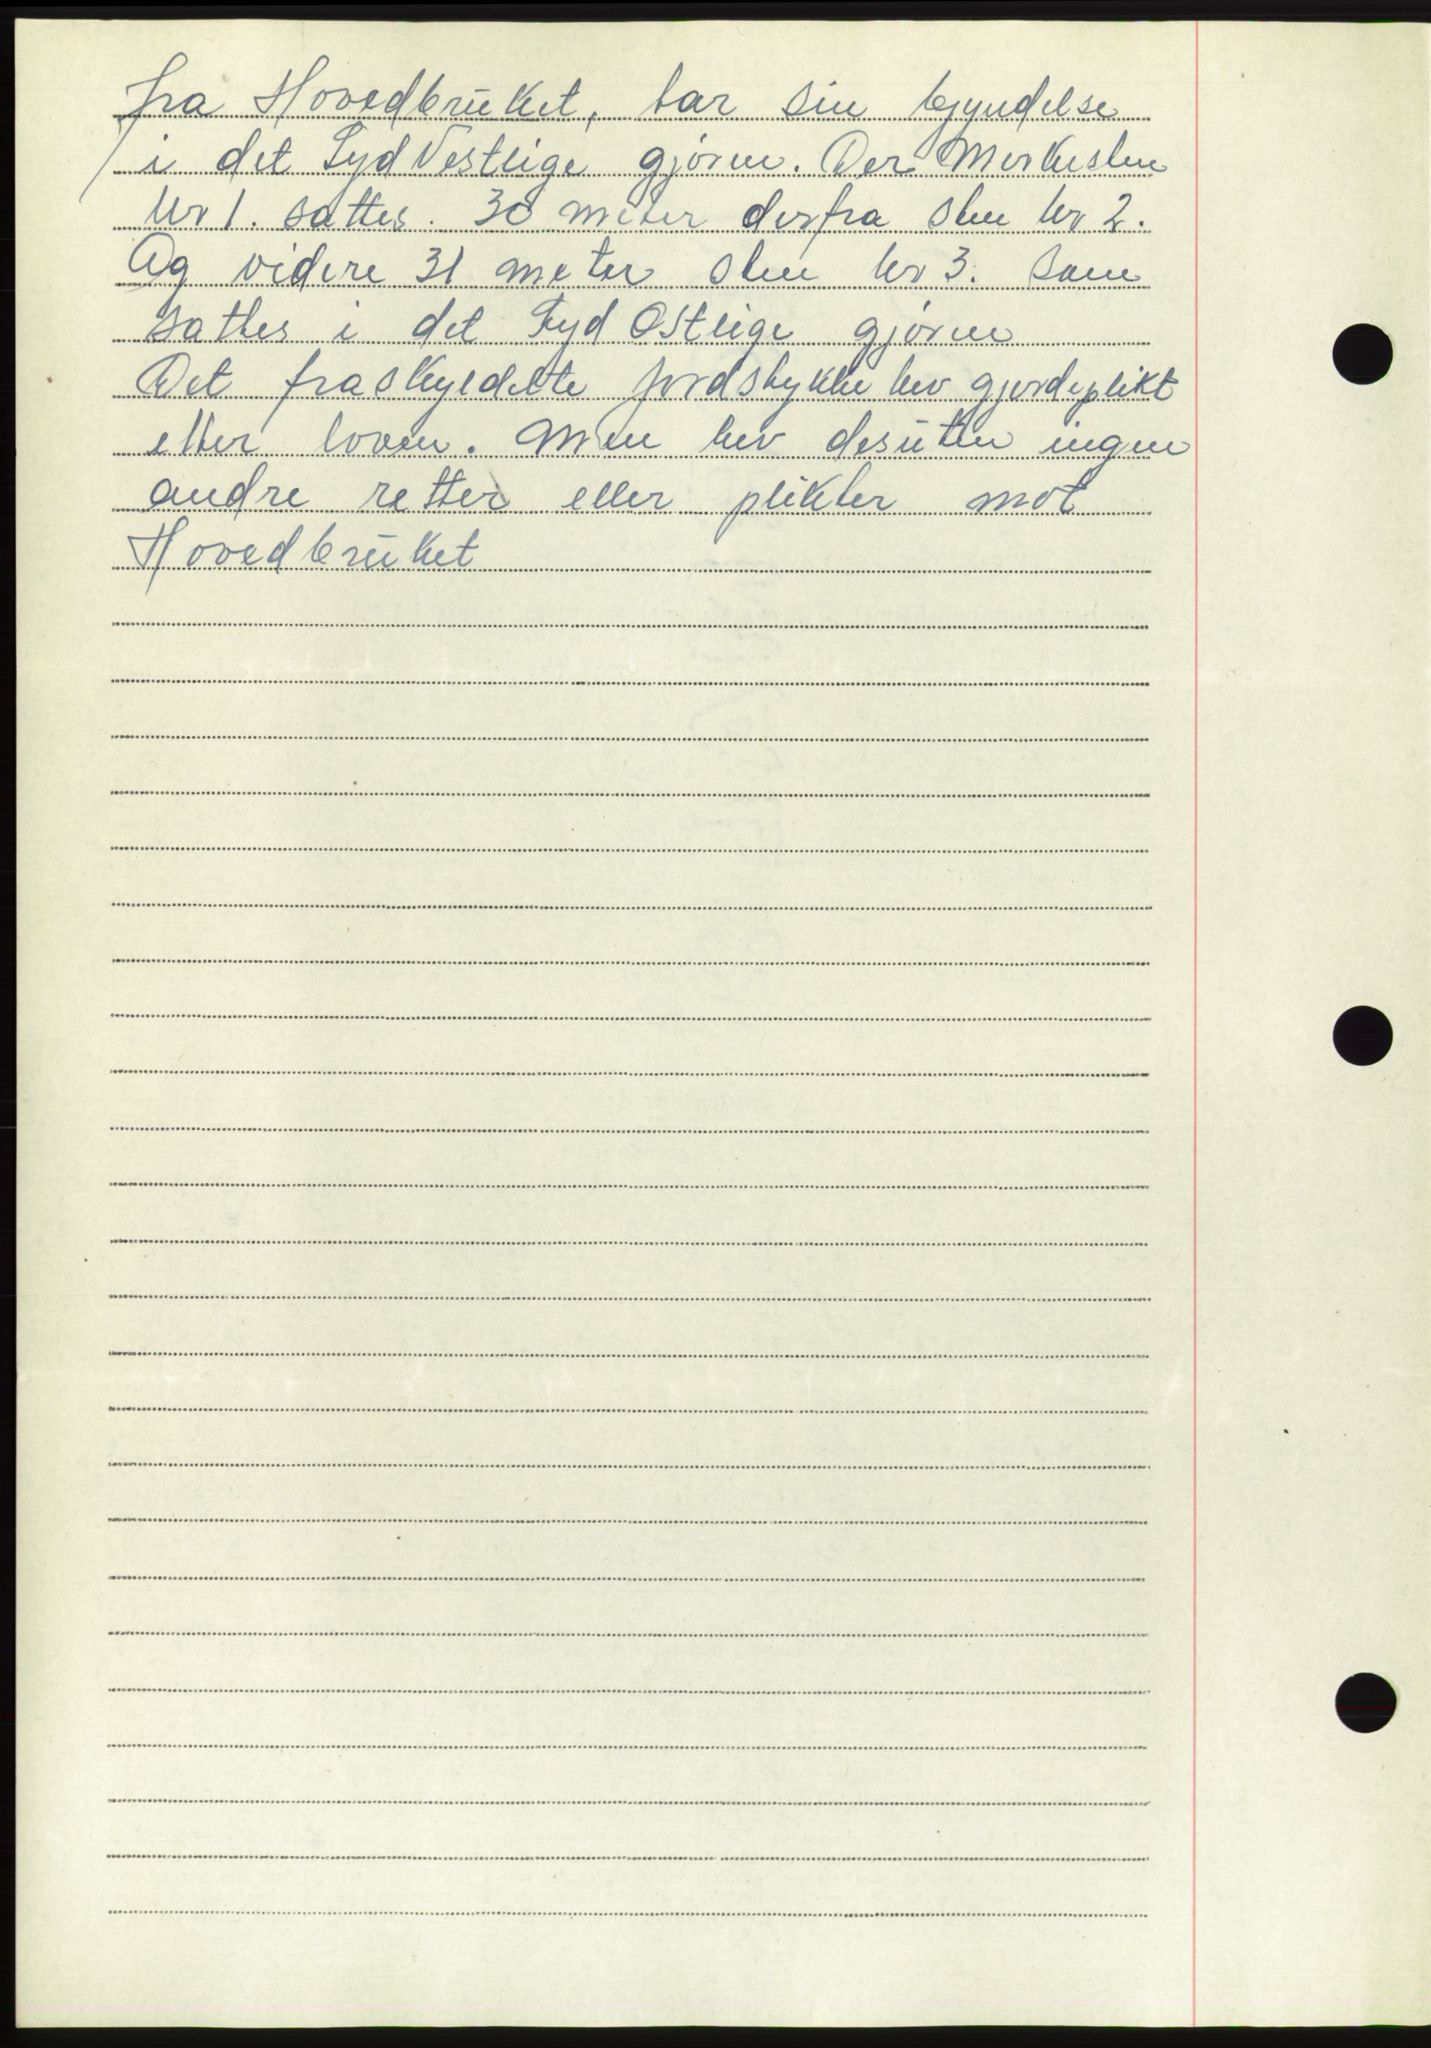 fra Hovedbruket, tar sin byyndelse
i det Syd Vestlige gjörne. Der Merkesten
Nr 1. sattes. 30 meter derfra sten Nr 2.
Og videre 31 meter sten Nr 3. som
sattes i det Syd Ostlige gjörne
Det fraskyldelte jordstykke hev gjerdeplikt
etter loven. Men hev desuten ingen
andre retter eller plikter mot
Hovedbruket